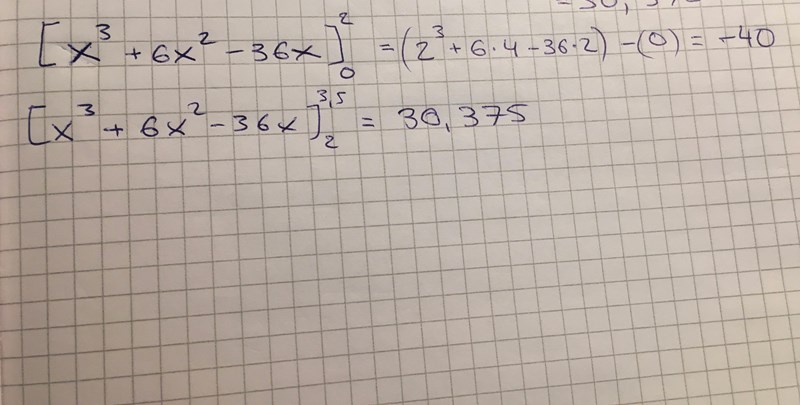 [x³ + 6x² - 36x]₀² = (2³ + 6·4 - 36·2) - (0) = -40
[x³ + 6x² - 36x]₂^3,5 = 30,375